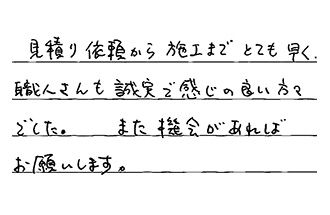 見積り依頼から施工までとても早く、
職人さんも誠実で感じの良い方々
でした。 また機会があれば
お願いします。